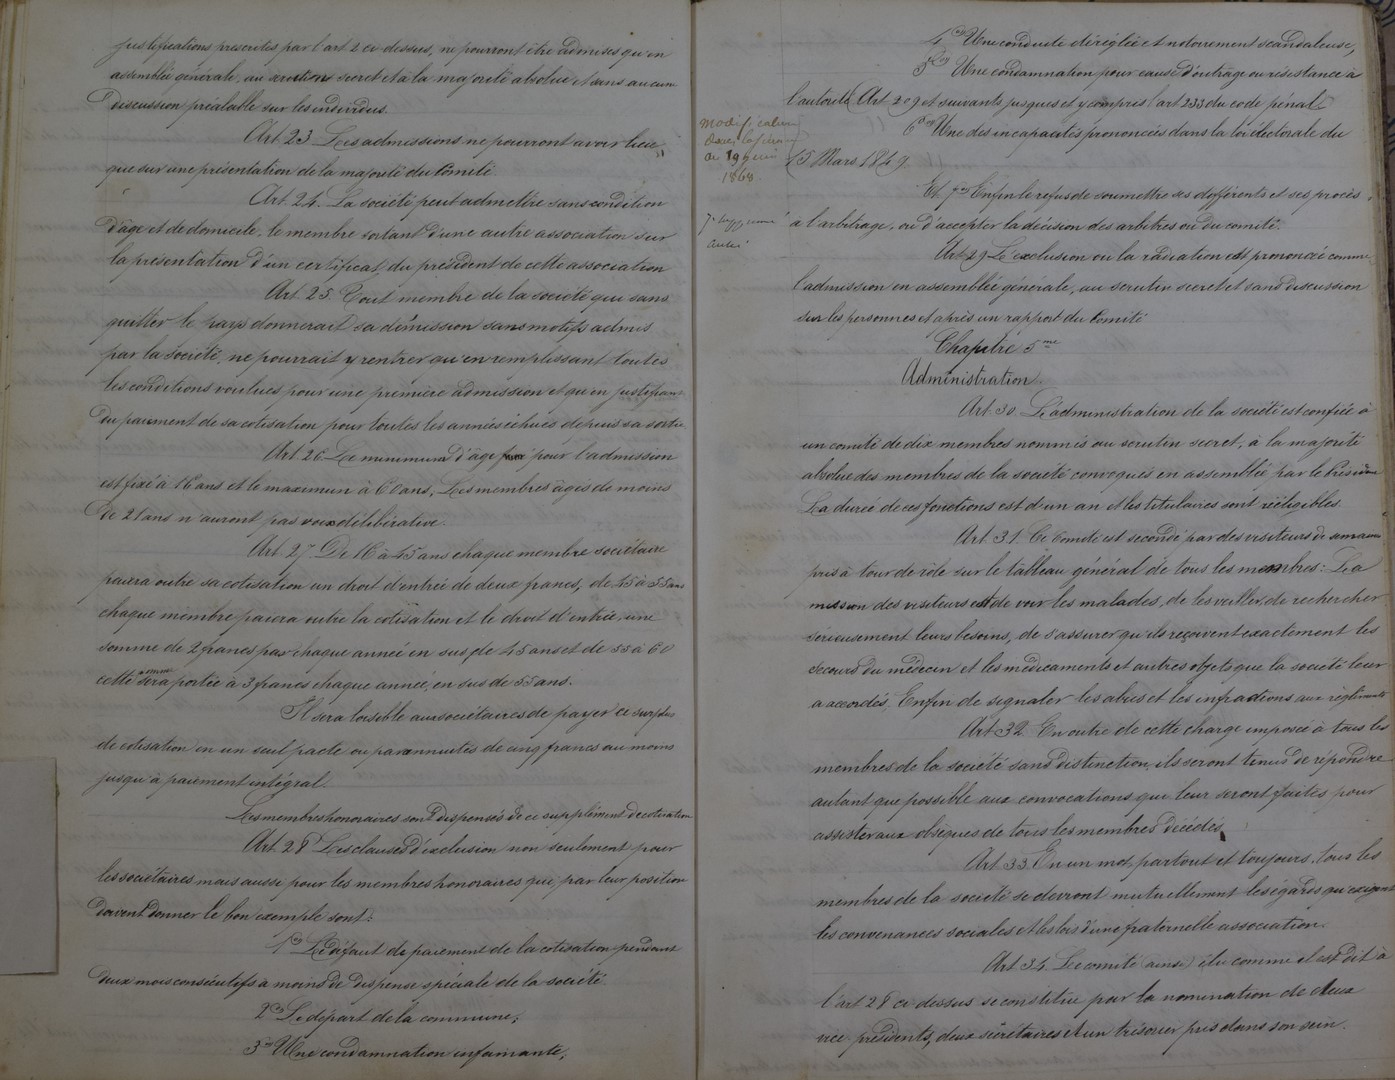 justifications prescrites par l'art 2 ci dessus, ne pourront être admises qu'en
assemblée générale, au scrutin secret et à la majorité absolue et sans aucune
discussion préalable sur les individus.
Art. 23. Les admissions ne pourront avoir lieu
que sur une présentation de la majorité du Comité.
Art. 24. La société peut admettre sans condition
d'âge et de domicile, le membre sortant d'une autre association sur
la présentation d'un certificat du président de cette association
Art. 25. Tout membre de la société qui sans
quitter le pays donnerait sa démission sans motifs admis
par la société, ne pourrait y rentrer qu'en remplissant toutes
les conditions voulues pour une première admission et qu'en justifiant
du paiement de sa cotisation pour toutes les années échues depuis sa sortie
Art. 26. Le minimum d'âge pour l'admission
est fixé à 16 ans et le maximun à 60 ans, Les membres âgés de moins
de 21 ans n'auront pas voix délibérative.
Art. 27 De 16 à 45 ans chaque membre sociétaire
paiera outre sa cotisation un droit d'entrée de deux francs, de 45 à 55 ans
chaque membre paiera outre la cotisation et le droit d'entrée une
somme de 2 francs par chaque année en sus de 45 ans et de 55 à 60
cette somme sera portée à 3 francs chaque année, en sus de 55 ans.
Il sera loisible aux sociétaires de payer ce surplus
de cotisation en un seul pacte ou par annuités de cinq francs au moins
jusqu'à paiement intégral.
Les membres honoraires sont dispensés de ce supplément de cotisation
Art. 28 Les clauses d'exclusion non seulement pour
les sociétaires mais aussi pour les membres honoraires qui, par leur position
doivent donner le bon exemple sont:
1º Le défaut de paiement de la cotisation pendant
deux mois consécutifs à moins de dispense spéciale de la société.
2º Le départ de la commune;
3º Une condamnation infamante;
4º Une conduite déréglée et notoirement scandaleuse,
5º Une condamnation pour cause d'outrage ou résistance à
l'autorité (Art 209 et suivants jusques et y compris l'art 233 du code pénal)
6º Une des incapacités prononcées dans la loi électorale du
15 Mars 1849.
Modification
de 19
1868.
Et 7º Enfin le refus de soumettre ses différents et ses procès
à l'arbitrage, ou d'accepter la décision des arbitres ou du comité.
Art 29 L'exclusion ou la radiation est prononcée comme
l'admission en assemblée générale, au scrutin secret et sans discussion
sur les personnes et après un rapport du Comité
Chapitre 5me
Administration.
Art. 30. L'administration de la société est confiée à
un comité de dix membres nommés au scrutin secret, à la majorité
absolue des membres de la société convoqués en assemblée par le Président
La durée de ces fonctions est d'un an et les titulaires sont rééligibles.
Art. 31. Ce Comité est secondé par des visiteurs de semaine
pris à tour de rôle sur le tableau général de tous les membres: La
mission des visiteurs est de voir les malades, de les veiller, de rechercher
sérieusement leurs besoins, de s'assurer qu'ils reçoivent exactement les
secours du médecin et les médicaments et autres objets que la société leur
a accordés. Enfin de signaler les abus et les infractions aux règlements
Art 32 En outre de cette charge imposée à tous les
membres de la société sans distinction, ils seront tenus de répondre
autant que possible aux convocations qui leur seront faites pour
assister aux obsèques de tous les membres décédés.
Art. 33. En un mot, partout et toujours, tous les
membres de la société se devront mutuellement les égards qu'exigent
les convenances sociales et les lois d'une fraternelle association.
Art. 34. Le comité (ainsi) élu comme il est dit à
l'art 28 ci-dessus se constitue par la nomination de deux
vice-présidents, deux sécrétaires et un trésorier pris dans son sein.